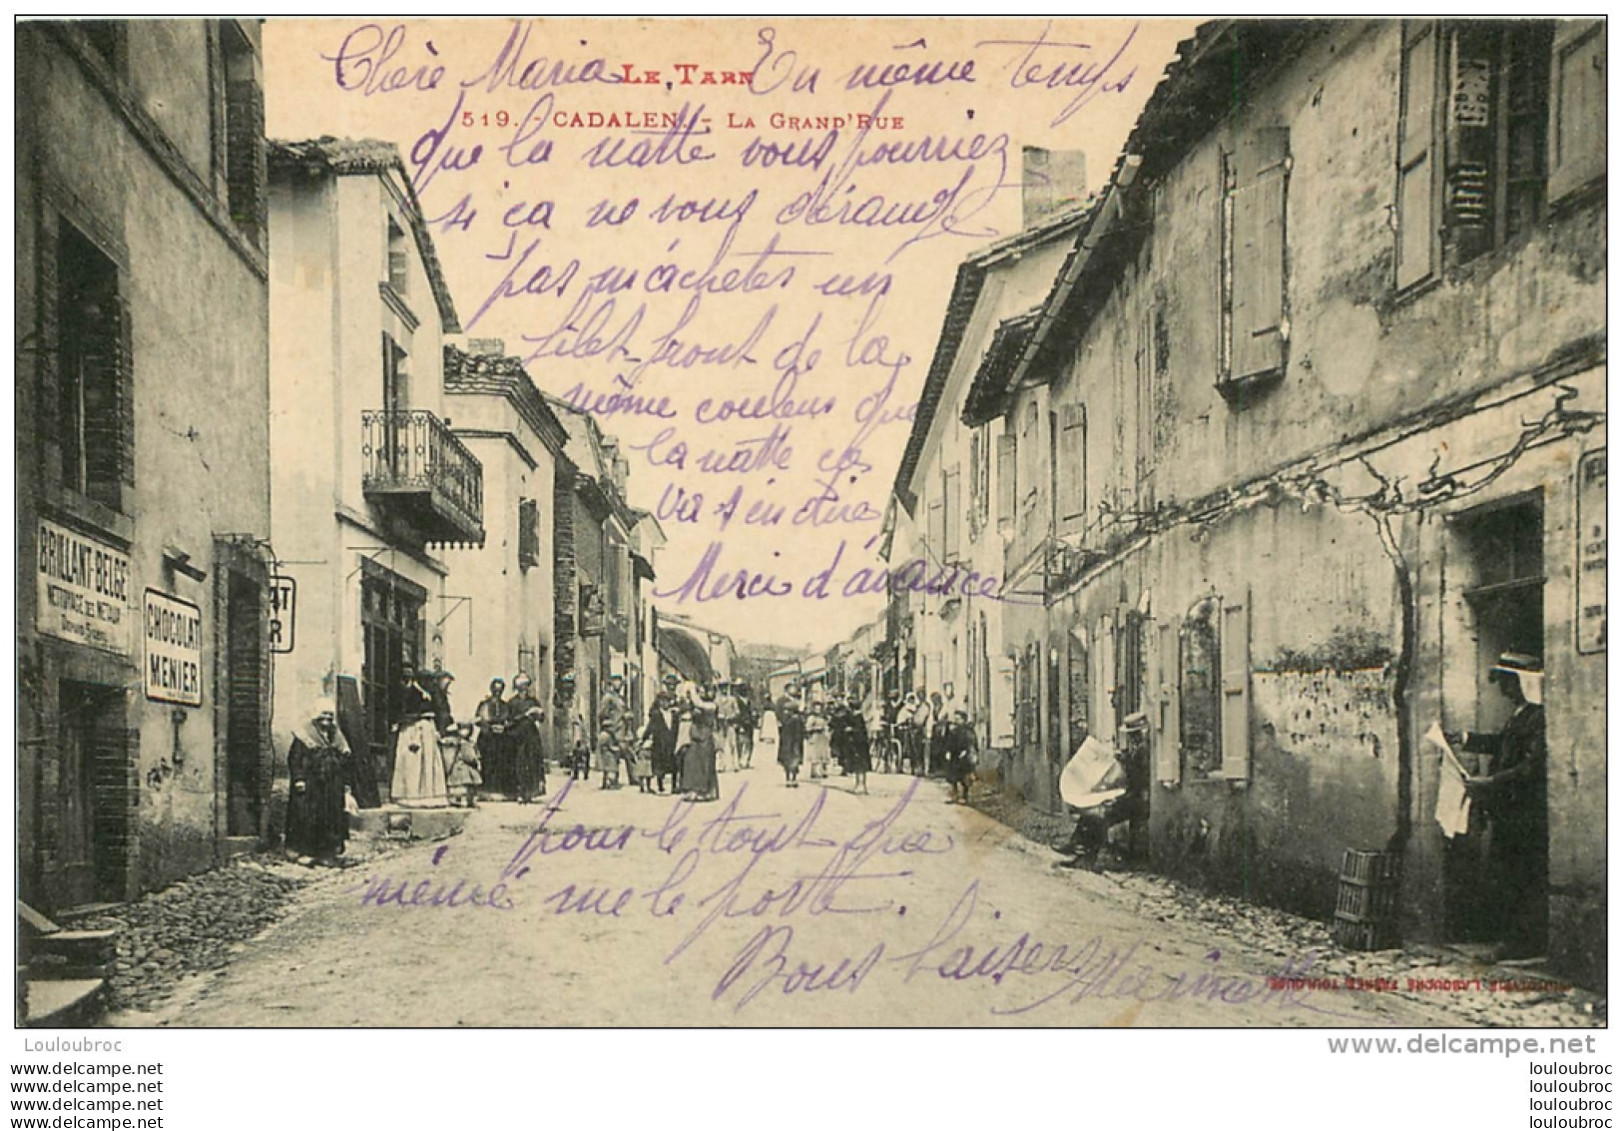 Chère Maria, En même temps
LE TARN
519. - CADALEN. - LA GRAND'RUE
que la natte vous pourriez
si ça ne vous dérange
pas m'achetes un
filet front de la
même couleur que
la natte ça
va s'en dire
Merci d'avance
BRILLANT-BELGE
NETTOYAGE DES METAUX
CHOCOLAT
MENIER
AT
ER
pour le tout que
mémé me le porte.
Bons baisers Marinette
PHOTOTYPIE LABOUCHE FRÈRES, TOULOUSE
Louloubroc
www.delcampe.net
louloubroc
louloubroc
louloubroc
louloubroc
louloubroc
louloubroc
louloubroc
louloubroc